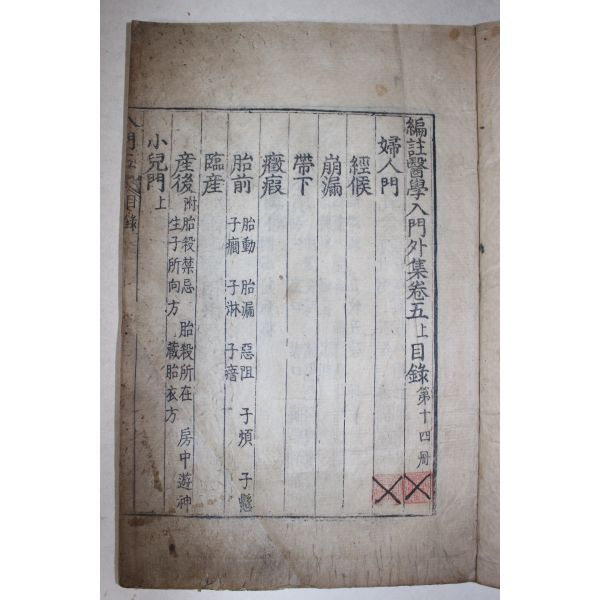 編註醫學入門外集卷五上目錄 第十四冊
婦人門
經候
崩漏
帶下
癥瘕
胎前 胎動 胎漏 惡阻 子煩 子懸
子癎 子淋 子瘖
臨產
產後 附胎殺禁忌 胎殺所在 房中遊神
生子所向方 藏胎衣方
小兒門上
入門五 目錄